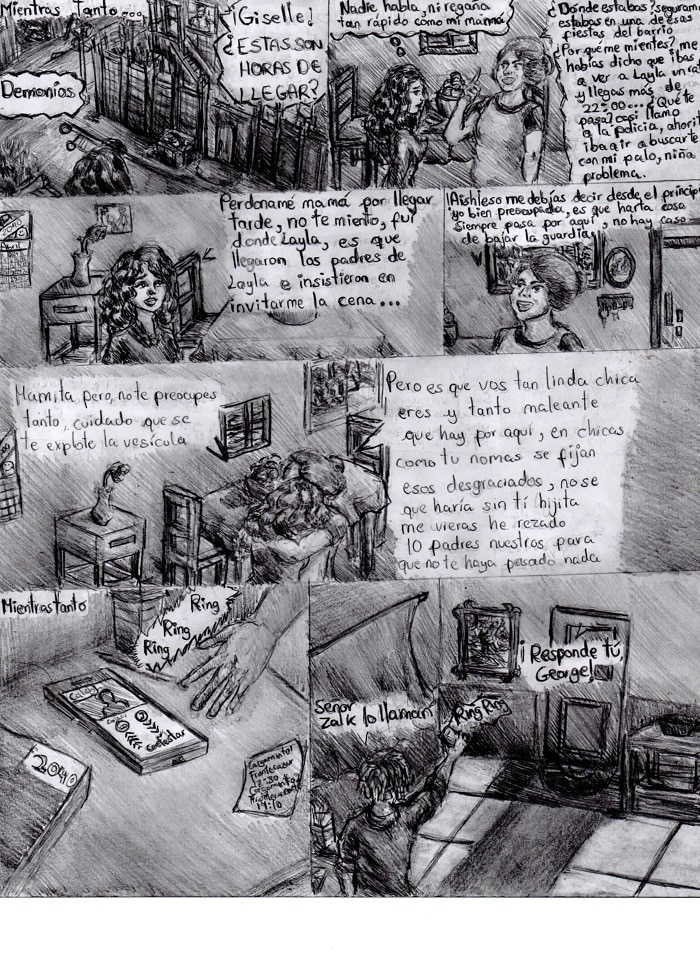 Mientras tanto...
Demonios
¡Giselle!
¿ESTAS SON
HORAS DE
LLEGAR?
Nadie habla, ni regaña
tan rápido cómo mi mamá
¿Dónde estabas? seguram
estabas en una de esas
fiestas del barrio
¿Por qué me mientes? me
habías dicho que ibas
a ver a Layla un rat
y llegas más de
22:00...¿Qué te
pasa? casi llamo
a la policía, ahorit
iba a ir a buscarte
con mi palo, niña
problema.
Abril
Perdoname mamá por llegar
tarde, no te miento, fui
donde Layla, es que
llegaron los padres de
Layla e insistieron en
invitarme la cena...
¡Aish! eso me debías decir desde el princip
yo bien preocupada, es que harta cosa
siempre pasa por aquí, no hay caso
de bajar la guardia
Mamita pero, no te preocupes
tanto, cuidado que se
te explote la vesícula
Pero es que vos tan linda chica
eres y tanto maleante
que hay por aquí, en chicas
como tu nomas se fijan
esos desgraciados, no se
que haría sin tí hijita
me vieras he rezado
10 padres nuestros para
que no te haya pasado nada
Mientras tanto
Ring
Ring
Ring
Contestar
2040
Cargamento
12:30
19:10
Señor
Zalk lo llaman
Ring Ring
¡Responde tú,
George!